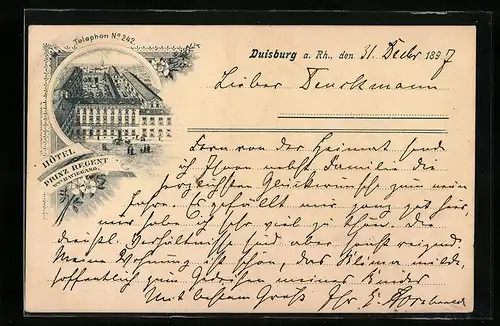 Telephon No 242.
HÔTEL
PRINZ REGENT
Duisburg a. Rh., den 31 Decbr 1897
Lieber
Fern von der Heimat sende
ich Ihnen nebst Familie die
herzlichsten Glückwünsche zum neuen
Jahre. Es gefällt mir ganz gut hier,
nur habe ich sehr viel zu thun. Die
Verhältnisse sind aber höchst reizend.
Meine Wohnung ist schön, das Klima milde,
hoffentlich zum Gedeihen meines Kindes
Mit bestem Gruß Ihr